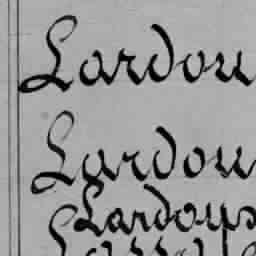 Lardou
Lardou
Lardous